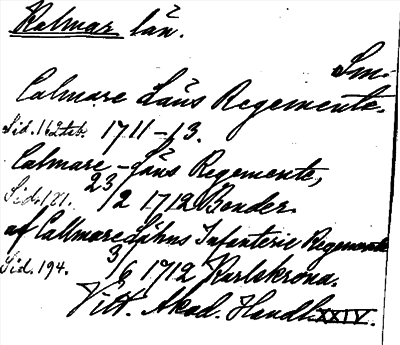 Kalmar län.
Sm.
Calmare Läns Regemente.
Sid. 162 tab. 1711-13.
Calmare-Läns Regemente,
Sid. 181. 23/2 1712 Bender.
af Callmare Lähns Infanterie Regemente
Sid. 194. 3/6 1712 Karlskrona.
Vitt. Akad. Handl. XXIV.